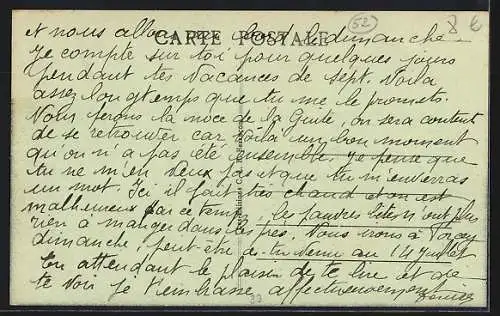 et nous allons au bord le dimanche.
CARTE POSTALE
52
8 €
Je compte sur toi pour quelques jours
pendant tes vacances de Sept. Voilà
assez longtemps que tu me le promets.
Nous ferons la noce de la Guite. On sera content
de se retrouver car voilà un bon moment
qu'on n'a pas été ensemble. Je pense que
tu ne m'en veux pas et que tu m'enverras
un mot. Ici il fait très chaud et on est
malheureux par ce temps, les pauvres bêtes n'ont plus
rien à manger dans les prés. Nous irons à
dimanche, peut-être es-tu venu au 14 Juillet
En attendant le plaisir de te lire et de
te voir je t'embrasse affectueusement